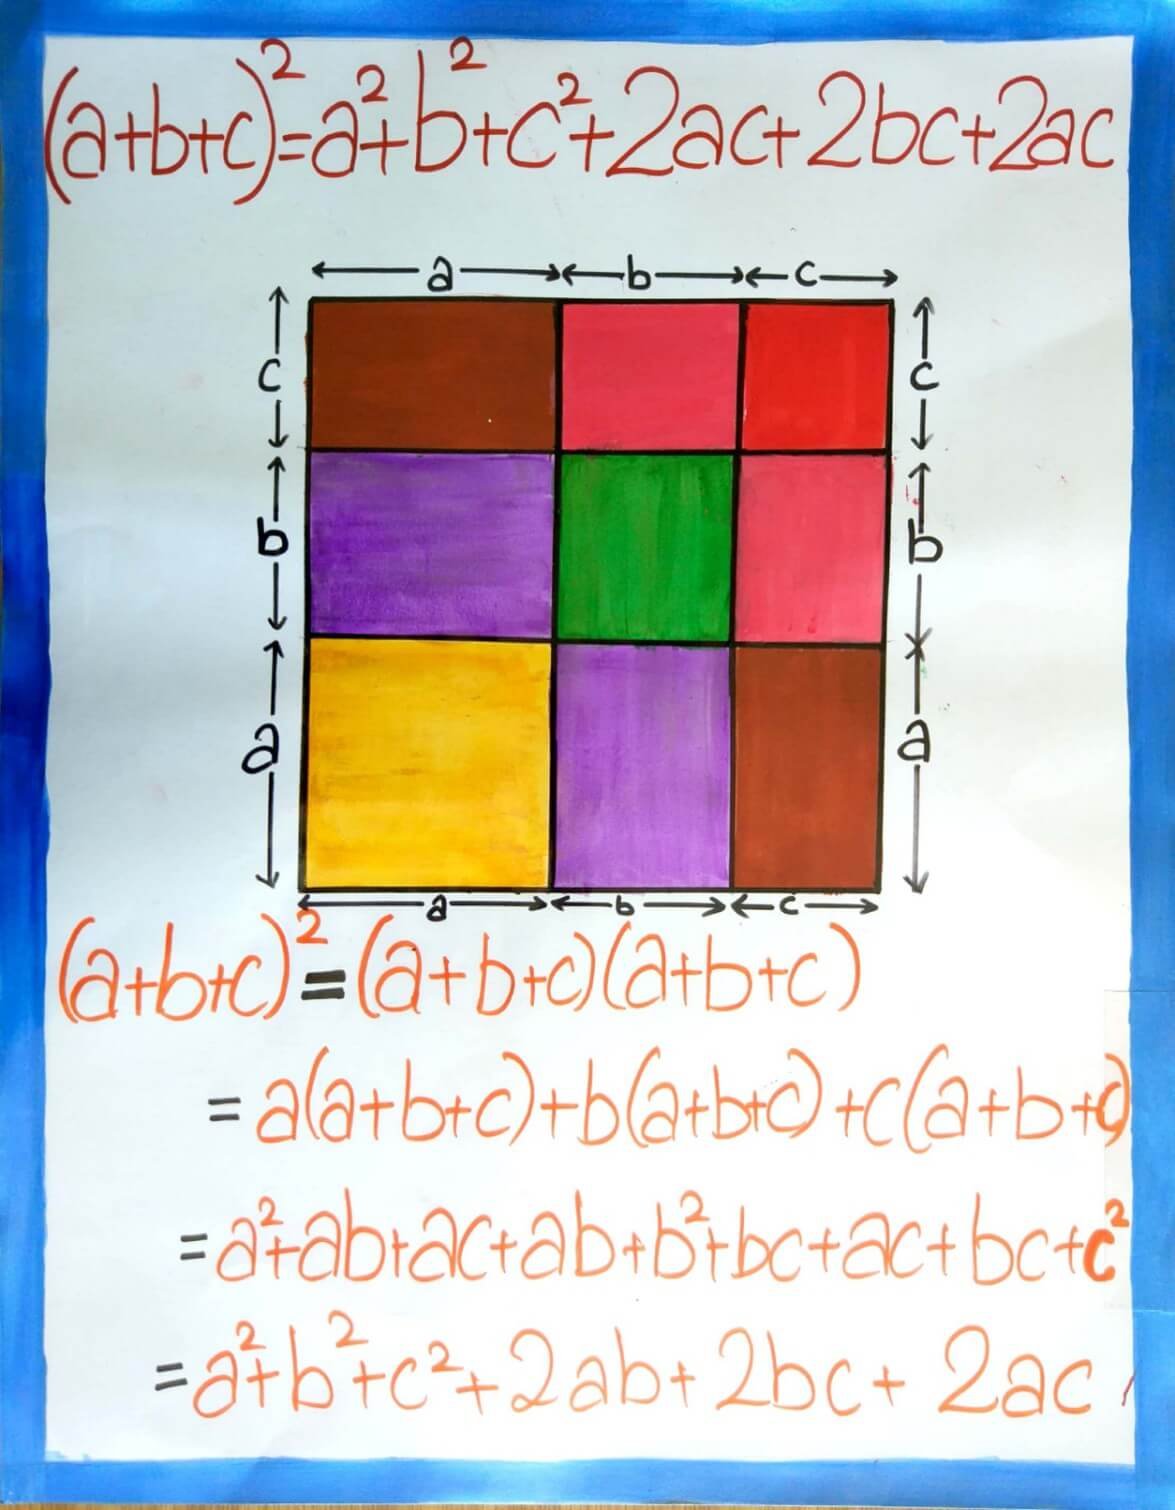 (a+b+c)²=a²+b²+c²+2ac+2bc+2ac
a b c
c c
b b
a a
a b c
(a+b+c)²=(a+b+c)(a+b+c)
=a(a+b+c)+b(a+b+c)+c(a+b+c)
=a²+ab+ac+ab+b²+bc+ac+bc+c²
=a²+b²+c²+2ab+2bc+2ac